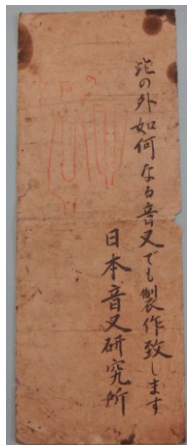 此の外如何なる音叉でも製作致します
日本音叉研究所